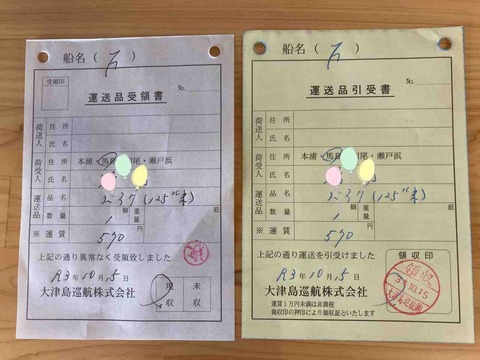 船名( )
受領印
No.
運送品受領書
荷送人
住所
氏名
荷受人
住所
本浦・馬島・刈尾・瀬戸浜
氏名
運送品
品名
ミニ37(125cc未)
数量
1
個
重量
瓩
※運賃
590
円
上記の通り異常なく受領致しました
R3年10月15日
大津島巡航株式会社
現収
未収
船名( )
No.
運送品引受書
荷送人
住所
氏名
荷受人
住所
本浦・馬島・刈尾・瀬戸浜
氏名
運送品
品名
数量
1
個
重量
瓩
※運賃
590
円
上記の通り運送を引受けました
領収印
R3年10月15日
大津島巡航株式会社
運賃1万円未満は非課税
領収印の押印により領収証といたします
領収
3.10.15